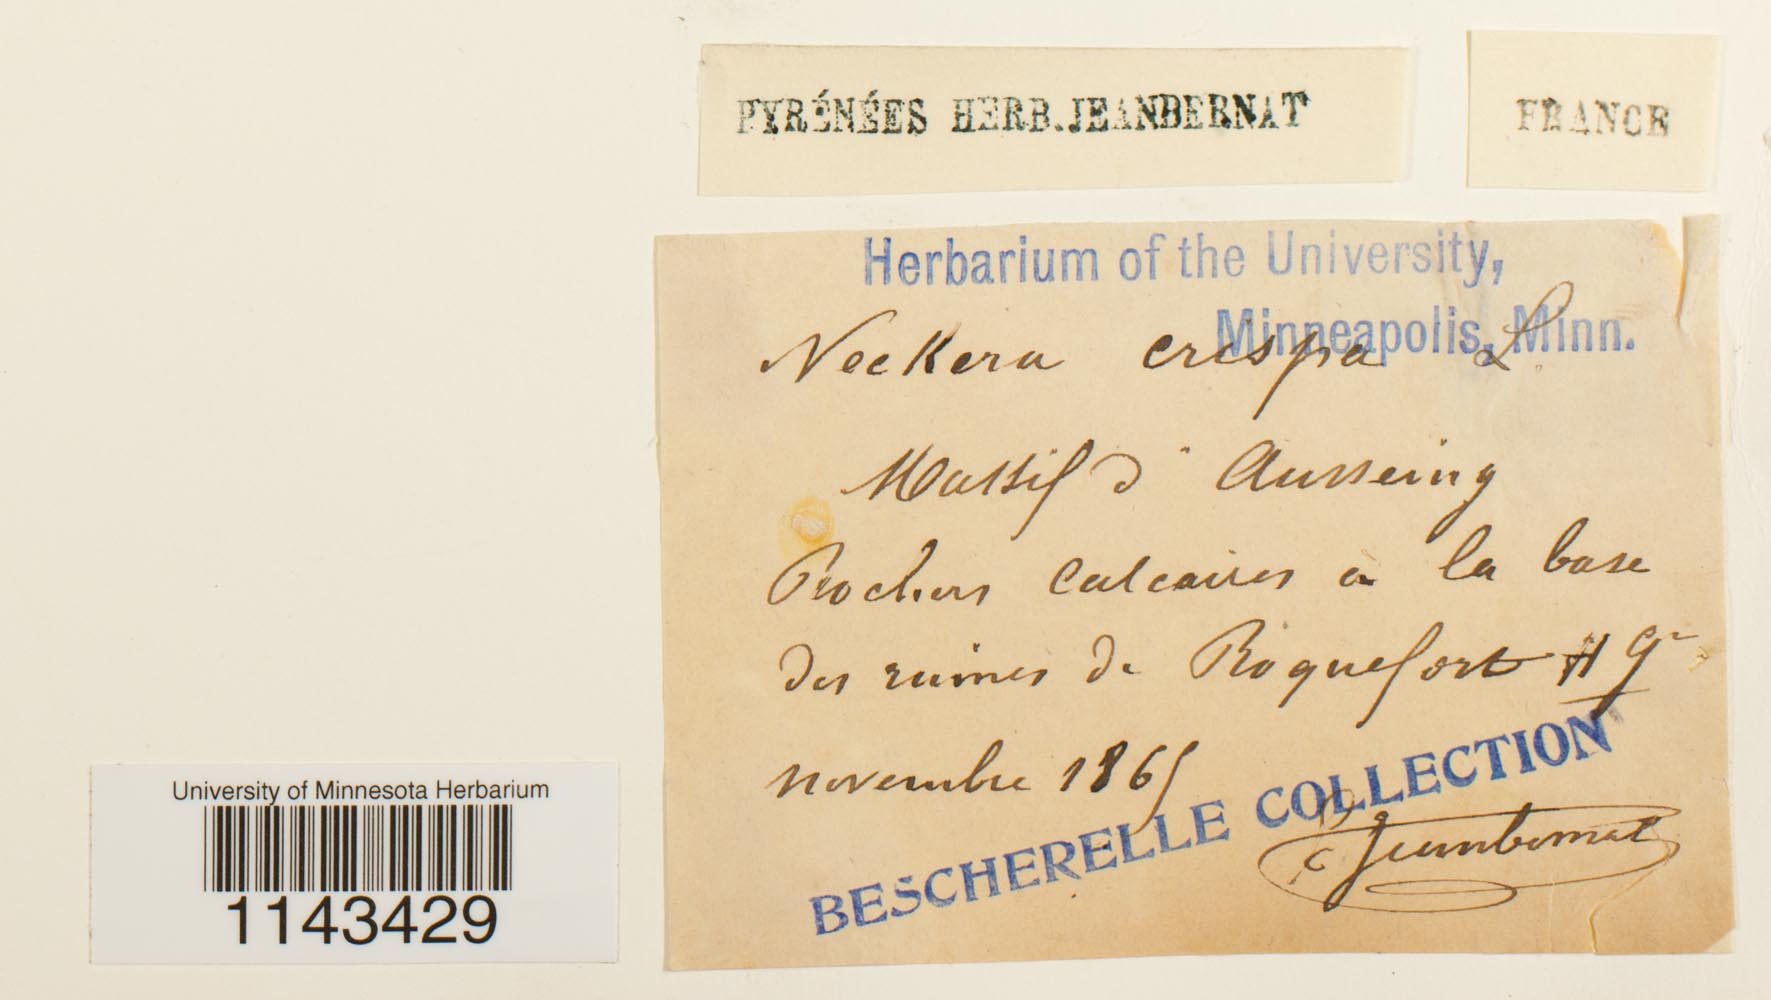 PYRÉNÉES HERB. JEANBERNAT
FRANCE
Herbarium of the University,
Minneapolis, Minn.
Neckera crispa L.
Massif d'Ausseing
Rochers calcaires à la base
des ruines de Roquefort H Gne
novembre 1865
BESCHERELLE COLLECTION
Jeanbernat
University of Minnesota Herbarium
1143429